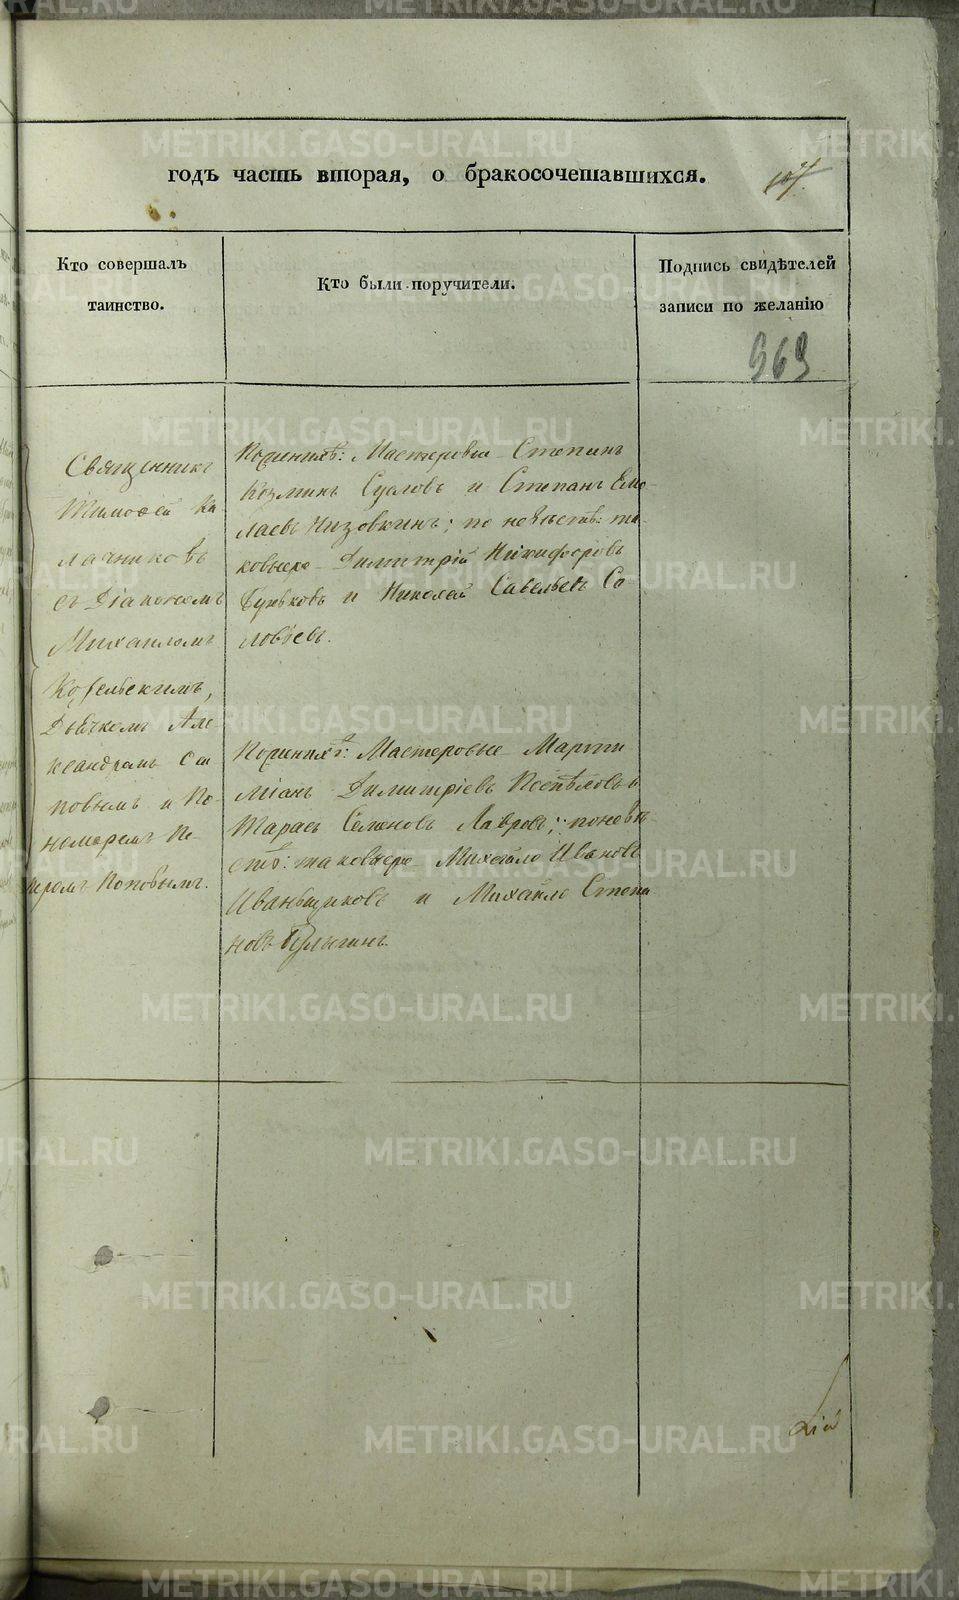 годъ часть вторая, о бракосочетавшихся.
107
Кто совершалъ
таинство.
Кто были поручители.
Подпись свидѣтелей
записи по желанію
363
Священникъ
Тимофей Ка
лачниковъ
съ Діакономъ
Михаиломъ
Дьячкомъ Але
ксандромъ
повымъ и По
номаремъ Пе
тромъ Поповымъ.
Мастеровые Степанъ
Козминъ Сусловъ и Степанъ Ермо
лаевъ Низовкинъ; по невѣстѣ: та
ковыеже Димитрій Никифоровъ
Буньковъ и Николай Савельевъ Со
ловьевъ.
Мастеровые Марти
міанъ Димитріевъ Поспѣловъ и
Тарасъ Семеновъ Лавровъ; по невѣ
стѣ: таковыеже Михайло Ивановъ
Иваньщиковъ и Михайло Степа
новъ Булыгинъ.
METRIKI.GASO-URAL.RU